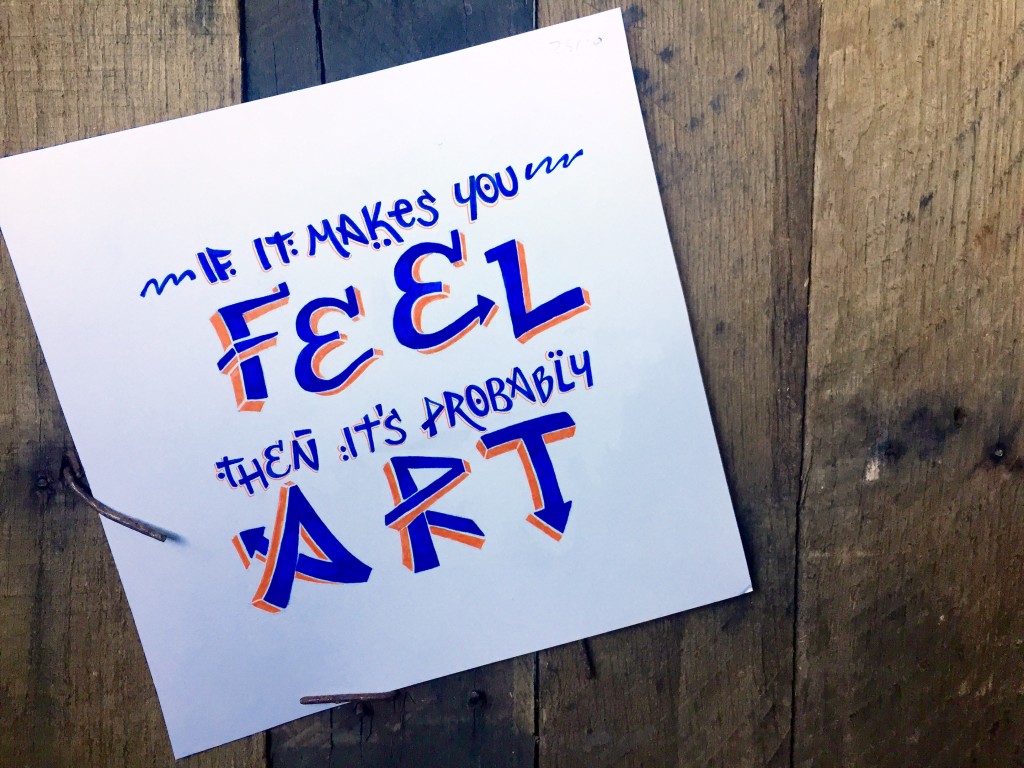 IF IT MAKES YOU
FEEL
THEN IT'S PROBABLY
ART